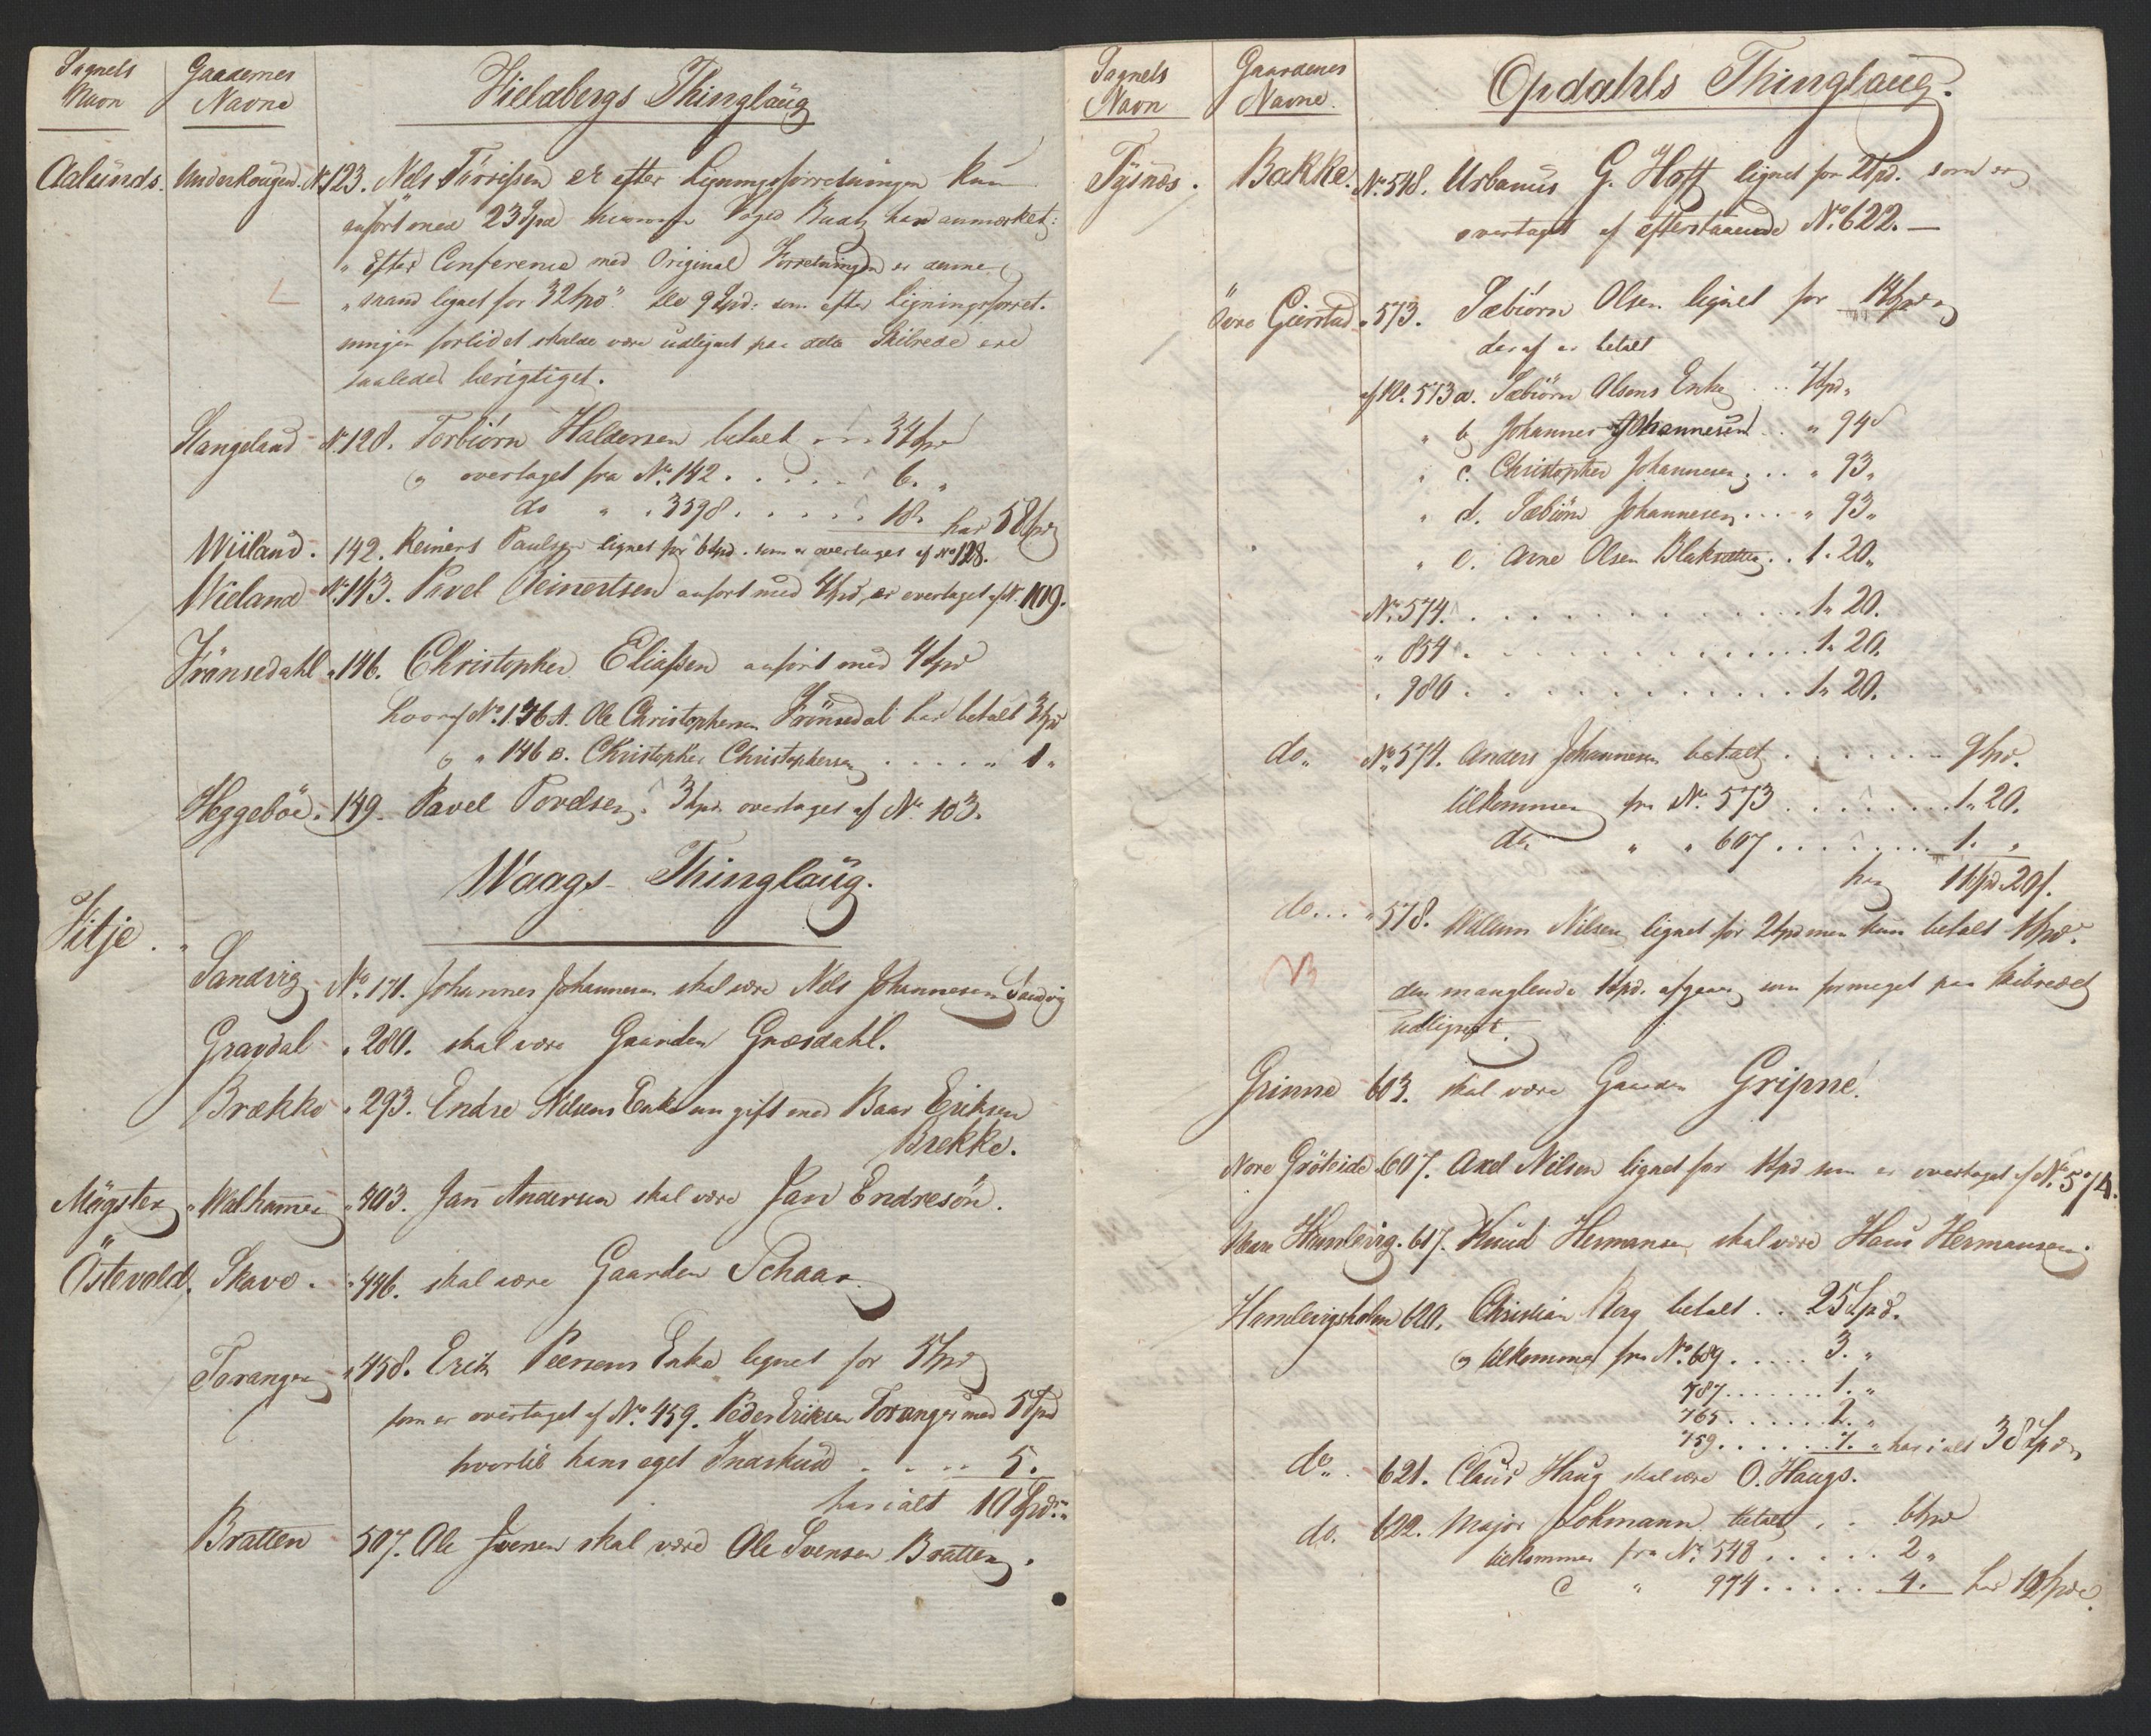 Sognets Navn
Gaardernes Navne
Hielebergs Thinglaüg
Aalünds. Underhougen. No 123. Nels Törrissen er efter Ligningsforretningen kun
anfört med 23 Lpd hvorom Foged Baatz har anmærket:
" Efter Conference med Original Forretningen er denne
" mand lignet for 32 Lpd" de 9 Lpd: som efter Ligningsforret-
ningen forlidet skulde være udlignet paa dette Skibrede ere
saaledes berigtiget.
Stangeland No. 128. Torbiörn Haldersen betalt ... 34 Lpd
og overtaget fra No. 142 ...... 6. "
do " " 3598 ..... 18. har 58 Lpd
Wiiland. 142. Reinert Paulsen lignet for 6 Lpd. som er overtaget af No 128.
Wieland No. 143. Pavel Reinertsen anfört med 4 Lpd, er overtaget af No. 109.
Frönsedahl " 146. Christopher Eliassen anfört med 4 Lpd
hvoraf No. 146 A. Ole Christophersen Frönsedal har betalt 3 Lpd
og " 146 B. Christopher Christophersen ..... " 1 "
Heggeböe. 149. Pavel Povelsen, 3 Lpd. overtaget af No. 103.
Waags Thinglaüg.
Fitje.
Sandvig No. 171. Johannes Johannesen skal være Nels Johannesen Sandvig
Gravdal " 280. skal være Gaarden Græsdahl.
Brække " 293. Endre Nilsens Enke nu gift med Baar Eriksen
Brekke.
Mögster " Walhammer " 403. Jan Andersen skal være Jan Endresön.
Östevold. Skave. " 446. skal være Gaarden Schaar
Toranger " 458. Erik Peersens Enke lignet for 5 Lpd
som er overtaget af No. 459. Peder Eriksen Toranger med 5 Lpd
hvortil hans eget Indskud .... 5.
har ialt 10 Lpd.
Bratten 507. Ole Iversen skal være Ole Svensen Bratten.
Sognets Navn
Gaardenes Navne.
Opdahls Thinglaug.
Tÿsnæs. Bakke. No. 548. Urbanus G. Hoff lignet for 2 Lpd. som er
overtaget af efterstaaende No. 622. —
Övre Gierstad " 573. Sæbiörn Olsen lignet for 14 Lpd
deraf er betalt
af No. 573 a. Sæbiörn Olsens Enke ... 7 Lpd "
" b Johannes Johannesen .. " 94
" c. Christopher Johannesen ... " 93 "
" d. Sæbiörn Johannesen .... " 93 "
" e. Arne Olsen .. 1. 20 "
No. 574. .............. 1. 20.
" 854 .............. 1. 20.
" 980 .............. 1. 20.
do " No. 574. Anders Johannesen betalt ....... 9 Lpd.
tilkommen fra No. 573 ........ 1. 20.
do " " 607 ........ 1. "
har 11 Lpd 20
do ... " 578. Willum Nilsen lignet for 2 Lpd men kun betalt 1 Lpd.
den manglende 1 Lpd. afgaar som formeget paa Skibredet
udlignet.
Grinne 603. skal være Gaarden Gripne.
Nore Gröteide 607. Axel Nilsen lignet for 1 Lpd som er overtaget af No. 574.
Humlevig. 617. Knud Hermansen skal være Hans Hermansen.
Humlevigsholm 620. Christian Berg betalt .. 25 Lpd.
og tilkommen fra No. 609 ..... 3. "
787 ....... 1. "
765 ...... 2. "
759 ...... 7. " har i alt 38 Lpd
do " . 621. Claus Haug skal være O. Haugs.
do. 622. Major Lohmann betalt ... 6 Lpd
tilkommen fra No. 548 ..... 2 "
" 974 ..... 4. har 12 Lpd.